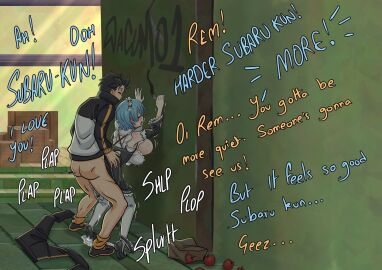 Ah!
Ooh
SUBARU-KUN!
I LOVE
YOU!
PLAP
PLAP
PLAP
Rem!
HARDER SUBARU KUN!
MORE!
Oi Rem... You gotta be
more quiet. Someone's gonna
see us!
But it feels so good
Subaru kun...
Geez...
SHLP
PLOP
Splurtt